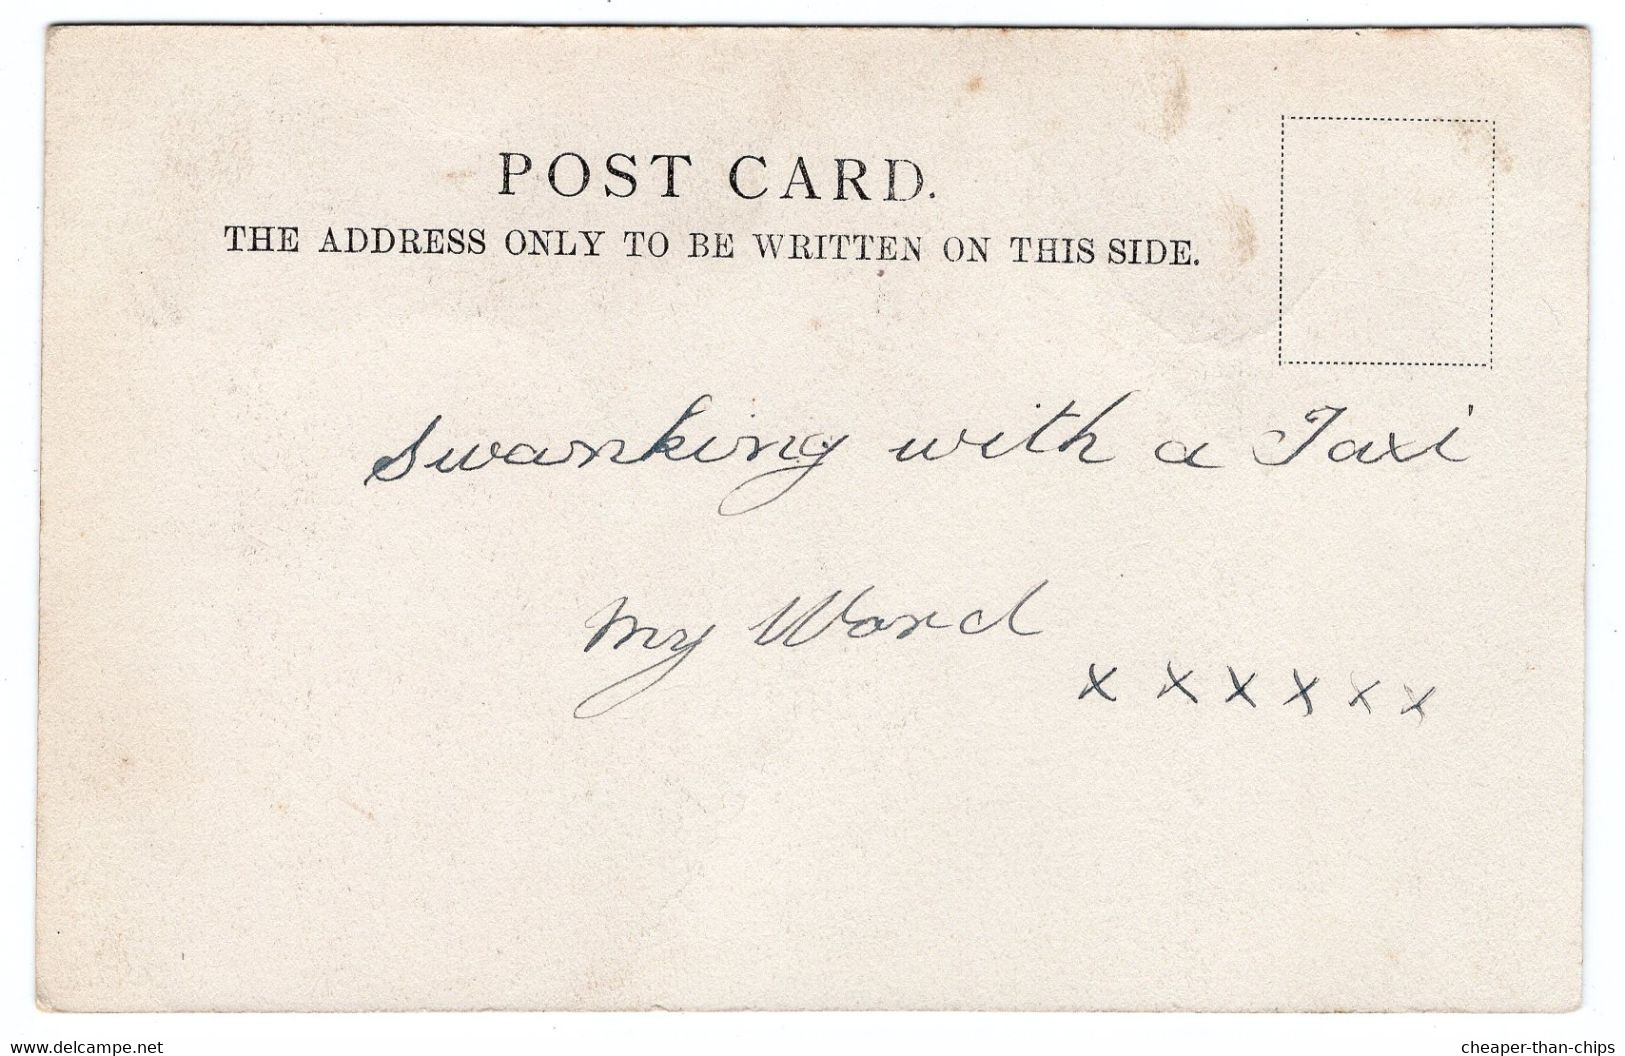 POST CARD.
THE ADDRESS ONLY TO BE WRITTEN ON THIS SIDE.
Swanking with a Taxi
My Word
x x x x x x
www.delcampe.net
cheaper-than-chips